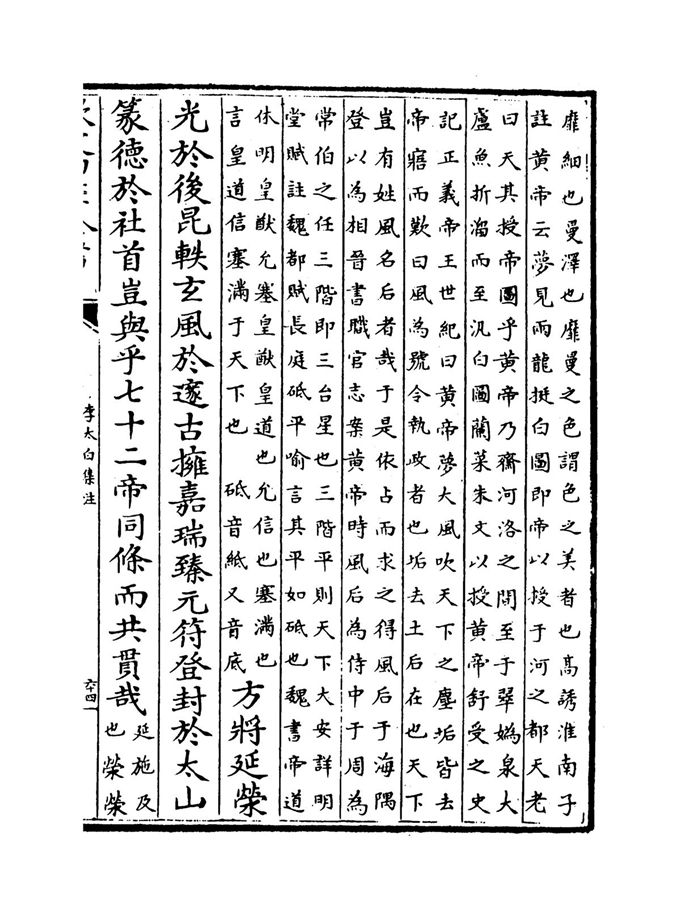 靡細也曼澤也靡曼之色謂色之美者也高誘淮南子
註黄帝云夢見兩龍挺白圖即帝以授于河之都天老
曰天其授帝圖乎黄帝乃齋河洛之間至于翠媯泉大
盧魚折溜而至汎白圖蘭菜朱文以授黄帝舒受之史
記正義帝王世紀曰黄帝夢大風吹天下之塵垢皆去
帝寤而歎曰風為號令執政者也垢去土后在也天下
豈有姓風名后者哉于是依占而求之得風后于海隅
登以為相晉書職官志案黄帝時風后為侍中于周為
常伯之任三階即三台星也三階平則天下大安詳明
堂賦註魏都賦長庭砥平喻言其平如砥也魏書帝道
休明皇猷允塞皇猷皇道也允信也塞满也
言皇道信塞滿于天下也　砥音紙又音底
方將延榮
光於後昆軼玄風於邃古擁嘉瑞臻元符登封於太山
篆德於社首豈與乎七十二帝同條而共貫哉
延施及
也榮榮
李太白集注
六十四